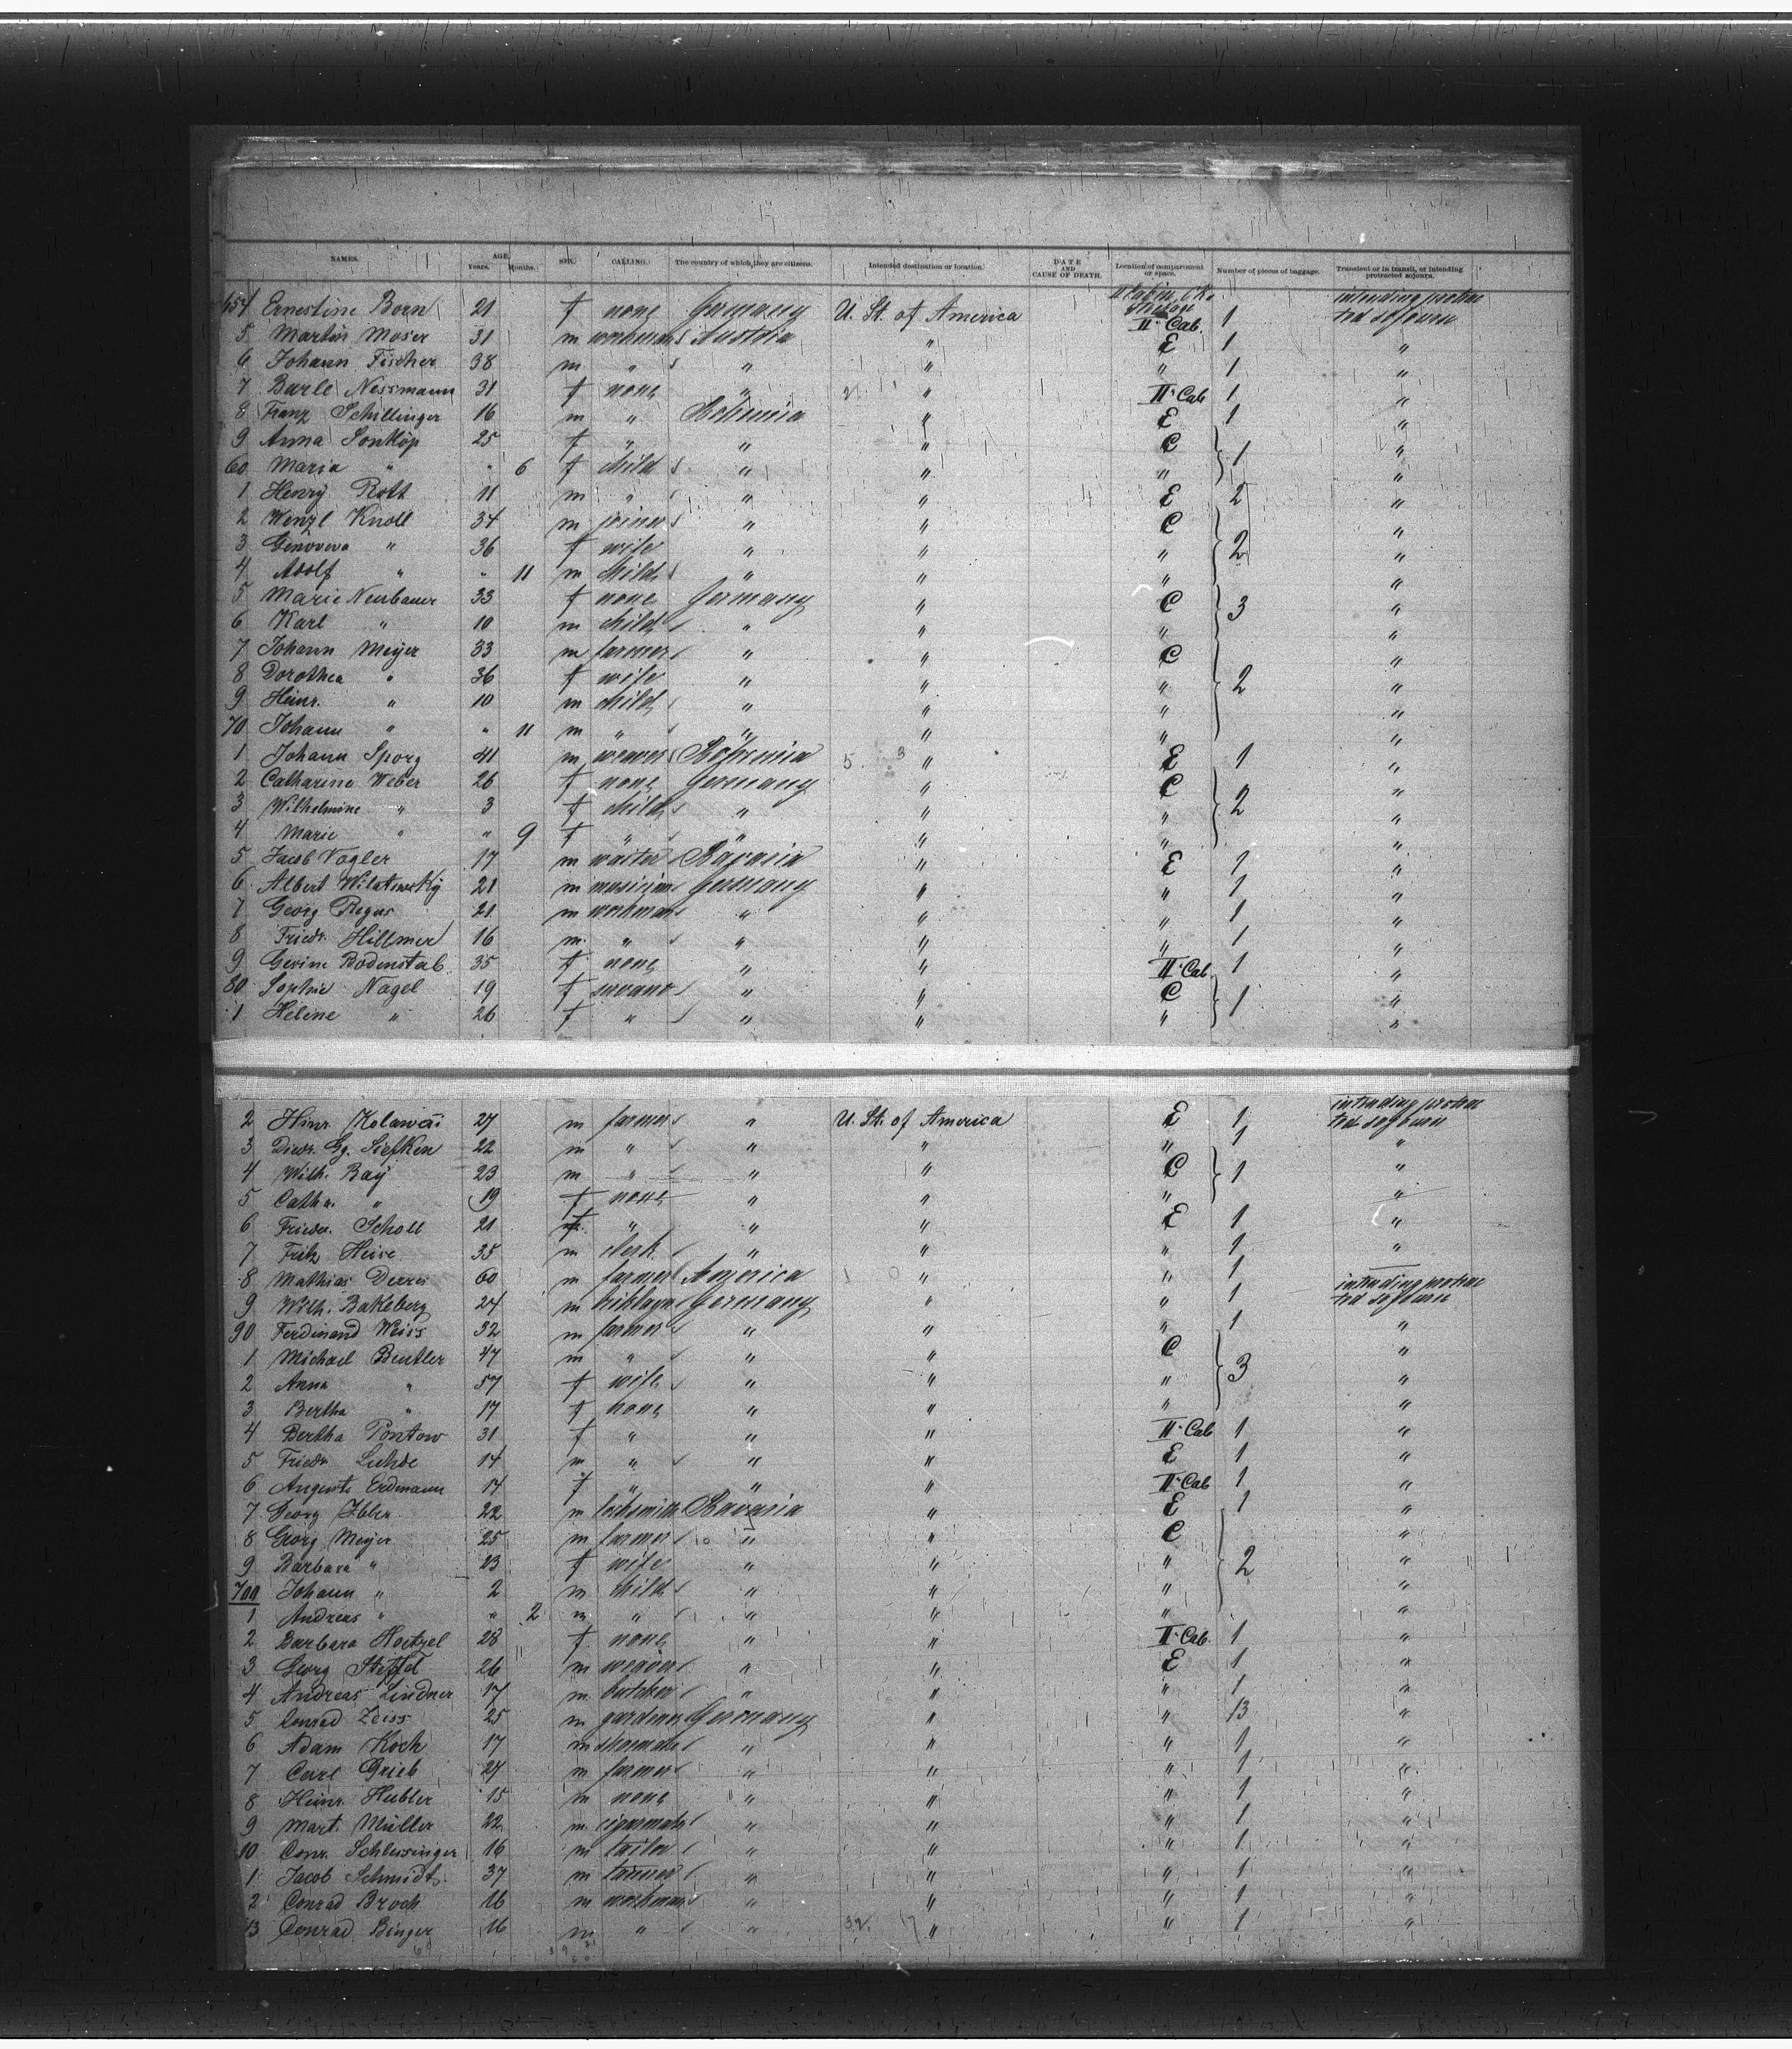 NAMES. AGE. Years. Months. SEX. CALLING. The country of which they are citizens. Intended destination or location. DATE AND CAUSE OF DEATH. Location of compartment or space. Number of pieces of baggage. Transient or in transit, or intending protracted sojourn.
654 Ernestine Born 21 f none Germany U. St. of America II Cab. 1 intending protracted sojourn
5 Martin Moser 31 m workman Austria " E 1 "
6 Johann Fischer 38 m " " " " 1 "
7 Barle Nessmann 31 f none " " II Cab 1 "
8 Franz Schillinger 16 m " Bohemia " E 1 "
9 Anna Sonkop 25 f " " " C 1 "
60 Maria " " 6 f child " " " "
1 Henry Roth 11 m " " " E 2 "
2 Wenzl Knoll 34 m joiner " " C 2 "
3 Genoveva " 36 f wife " " " "
4 Adolf " " 11 m child " " " "
5 Marie Neubauer 33 f none Germany " C 3 "
6 Karl " 10 m child " " " "
7 Johann Meyer 33 m farmer " " C 2 "
8 Dorothea " 36 f wife " " " "
9 Heinr. " 10 m child " " " "
70 Johann " " 11 m " " " " "
1 Johann Sporg 41 m weaver Bohemia " E 1 "
2 Catharine Weber 26 f none Germany " C 2 "
3 Wilhelmine " 3 f child " " " "
4 Marie " " 9 f " " " " "
5 Jacob Vogler 17 m waiter Bavaria " E 1 "
6 Albert 21 m musician Germany " " 1 "
7 Georg Regus 21 m workman " " " 1 "
8 Friedr. Hillmer 16 m. " " " " 1 "
9 Gesine Bodenstab 35 f none " " II Cab 1 "
80 Sophie Nagel 19 f servant " " C 1 "
1 Helene " 26 f " " " " "
2 Heinr. 27 m farmer " U. St. of America E 1 intending protracted sojourn
3 Diedr. Gg. Siefken 22 m " " " " 1 "
4 Wilh. Bay 23 m " " " C 1 "
5 Catha. " 19 f none " " " "
6 Frieder. Scholl 21 f " " " E 1 "
7 Fritz Heise 35 m clerk " " " 1 "
8 Mathias 60 m farmer America " " 1 —
9 Wilh. Bakeberg 24 m Germany " " 1 intending protracted sojourn
90 Ferdinand Weiss 32 m farmer " " " 1 "
1 Michael Beutler 47 m " " " C 3 "
2 Anna " 57 f wife " " " "
3 Bertha " 17 f none " " " "
4 Bertha Pontow 31 f " " " II Cab 1 "
5 Friedr. Luhde 14 m " " " E 1 "
6 Auguste Erdmann 14 f " " " II Cab 1 "
7 Georg 22 m locksmith Bavaria " E 1 "
8 Georg Meyer 25 m farmer " " C 2 "
9 Barbara " 23 f wife " " " "
700 Johann " 2 m child " " " "
1 Andreas " " 2 m " " " " "
2 Barbara Hoetzel 28 f none " " II Cab. 1 "
3 Georg 26 m weaver " " E 1 "
4 Andreas Lindner 17 m butcher " " " 1 "
5 Conrad Zeiss 25 m gardener Germany " " 13 "
6 Adam Koch 17 m shoemaker " " " 1 "
7 Carl Grieb 24 m farmer " " " 1 "
8 Heinr. Hubler 15 m none " " " 1 "
9 Mart. Müller 22 m. cigarmaker " " " 1 "
10 Conr. Schlesinger 16 m tailor " " " 1 "
1 Jacob Schmidt 37 m tanner " " " 1 "
2 Conrad Broch 16 m workman " " " 1 "
13 Conrad Binger 16 m " " " " 1 "